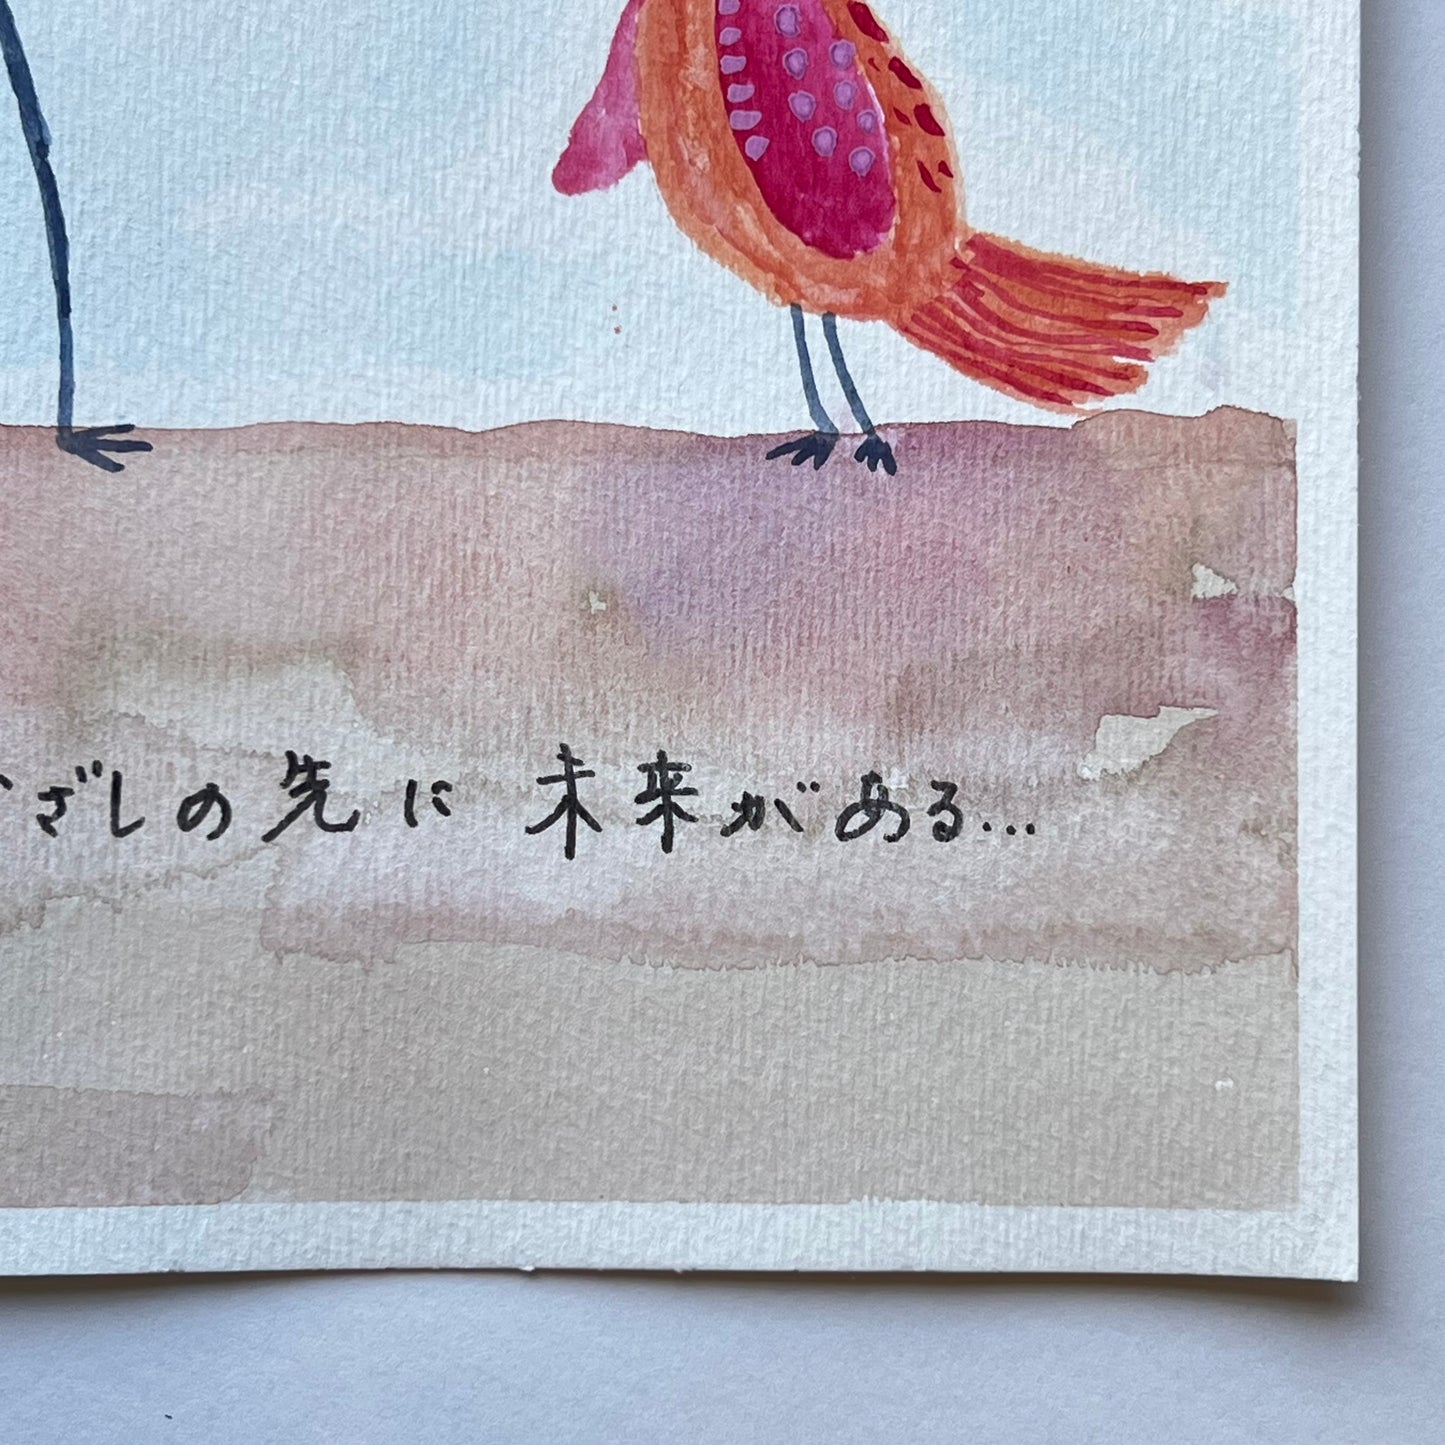 ざしの先に 未来がある…